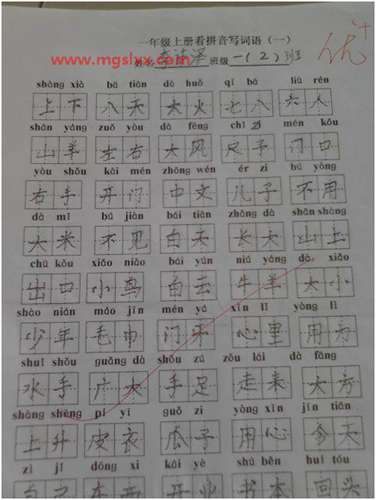 一年级上册看拼音写词语（一）
www.mgslxx.com
班级 一(2)班
优+
shàng xià bā tiān dà huǒ qī bā liù rén
上下 八天 大火 七八 六人
shān yáng zuǒ yòu dà fēng chǐ zi mén kǒu
山羊 左右 大风 尺子 门口
yòu shǒu kāi mén zhōng wén ér zi bù yòng
右手 开门 中文 儿子 不用
dà mǐ bú jiàn bái tiān zhǎng dà shān shàng
大米 不见 白天 长大 山上
chū kǒu xiǎo niǎo bái yún niú yáng dà xiǎo
出口 小鸟 白云 牛羊 大小
shào nián máo jīn mén yá xīn lǐ yòng lì
少年 毛巾 门牙 心里 用力
shuǐ shǒu guǎng dà shǒu zú zǒu lái dà fāng
水手 广大 手足 走来 大方
shàng shēng pí yī guā zǐ yòng xīn jīn tiān
上升 皮衣 瓜子 用心 今天
zì jǐ dōng xi kāi yè shū běn huí tóu
自己 东西 书本 回头